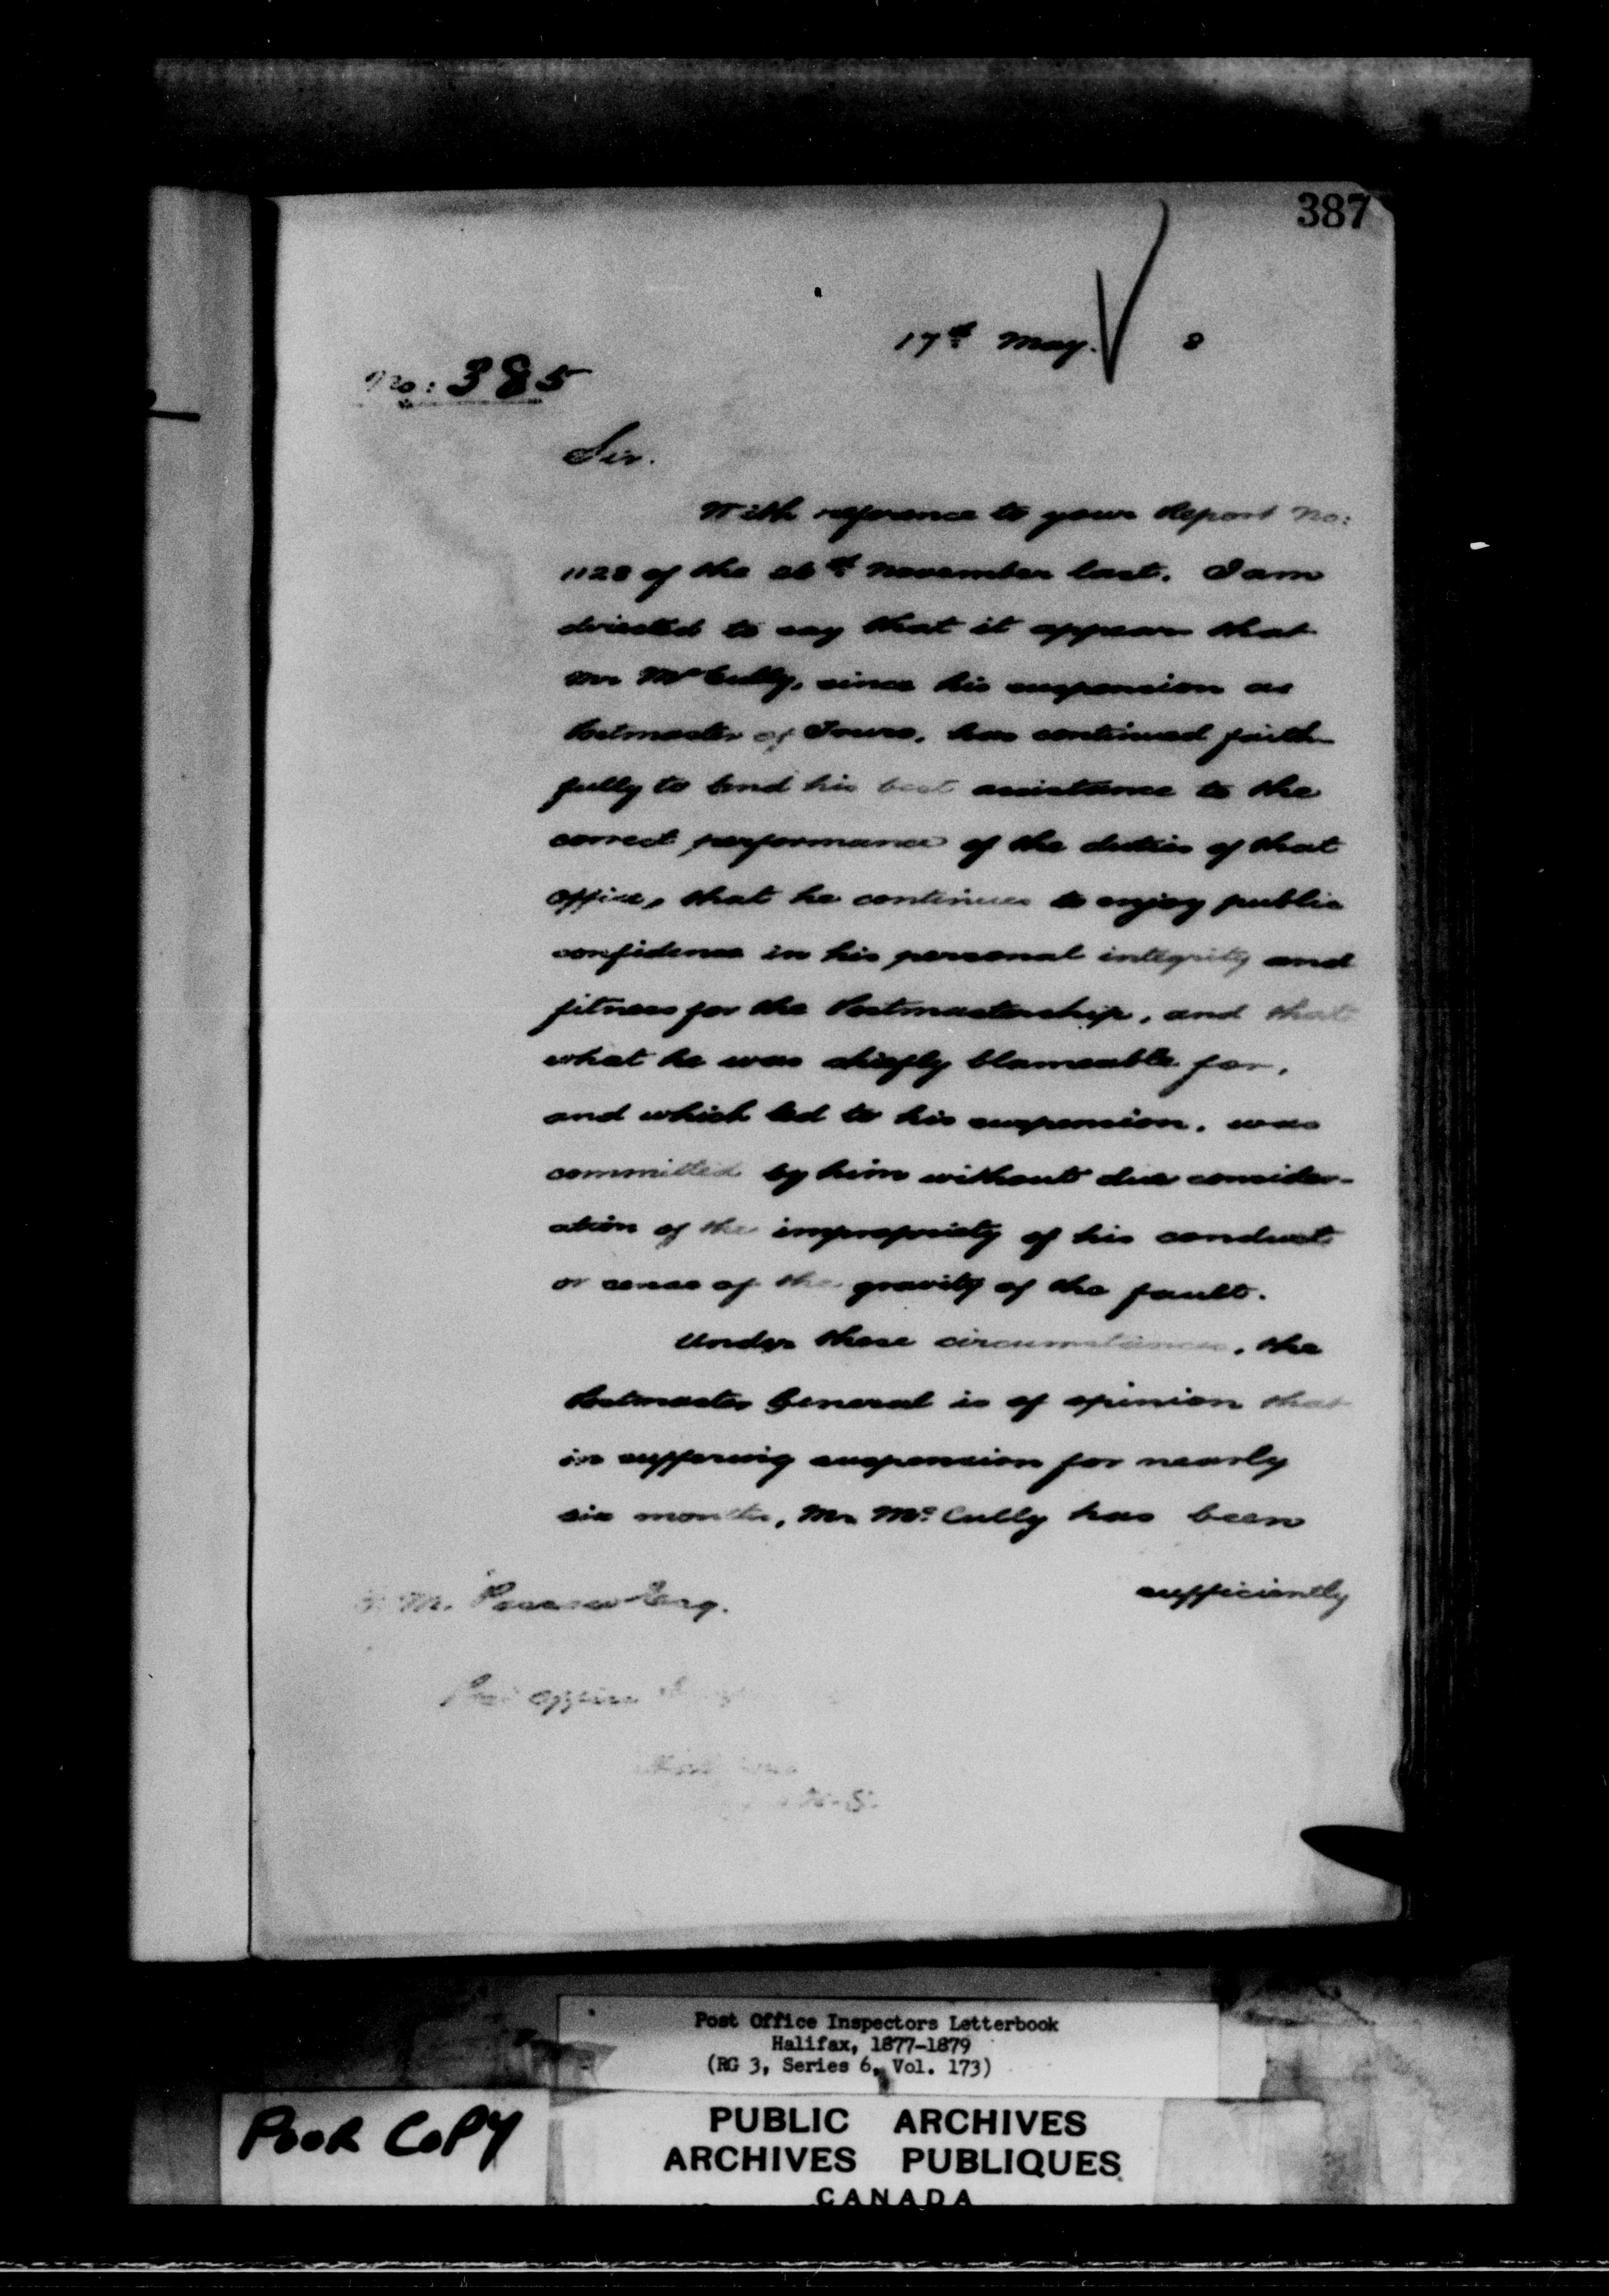 387
17th May. 8
No: 385
Sir.
With reference to your Report No:
1128 of the 26th November last. I am
directed to say that it appears that
Mr McCully, since his suspension as
Postmaster of Truro, has continued faith-
fully to lend his best assistance to the
correct performance of the duties of that
office, that he continues to enjoy public
confidence in his personal integrity and
fitness for the Postmastership, and that
what he was chiefly blameable for,
and which led to his suspension, was
committed by him without due consider-
ation of the impropriety of his conduct
or sense of the gravity of the fault.
Under these circumstances, the
Postmaster General is of opinion that
in suffering suspension for nearly
six months, Mr McCully has been
sufficiently
M. Passow Esq.
Post Office
N.S.
Post Office Inspectors Letterbook
Halifax, 1877-1879
(RG 3, Series 6, Vol. 173)
POOR COPY
PUBLIC ARCHIVES
ARCHIVES PUBLIQUES
CANADA